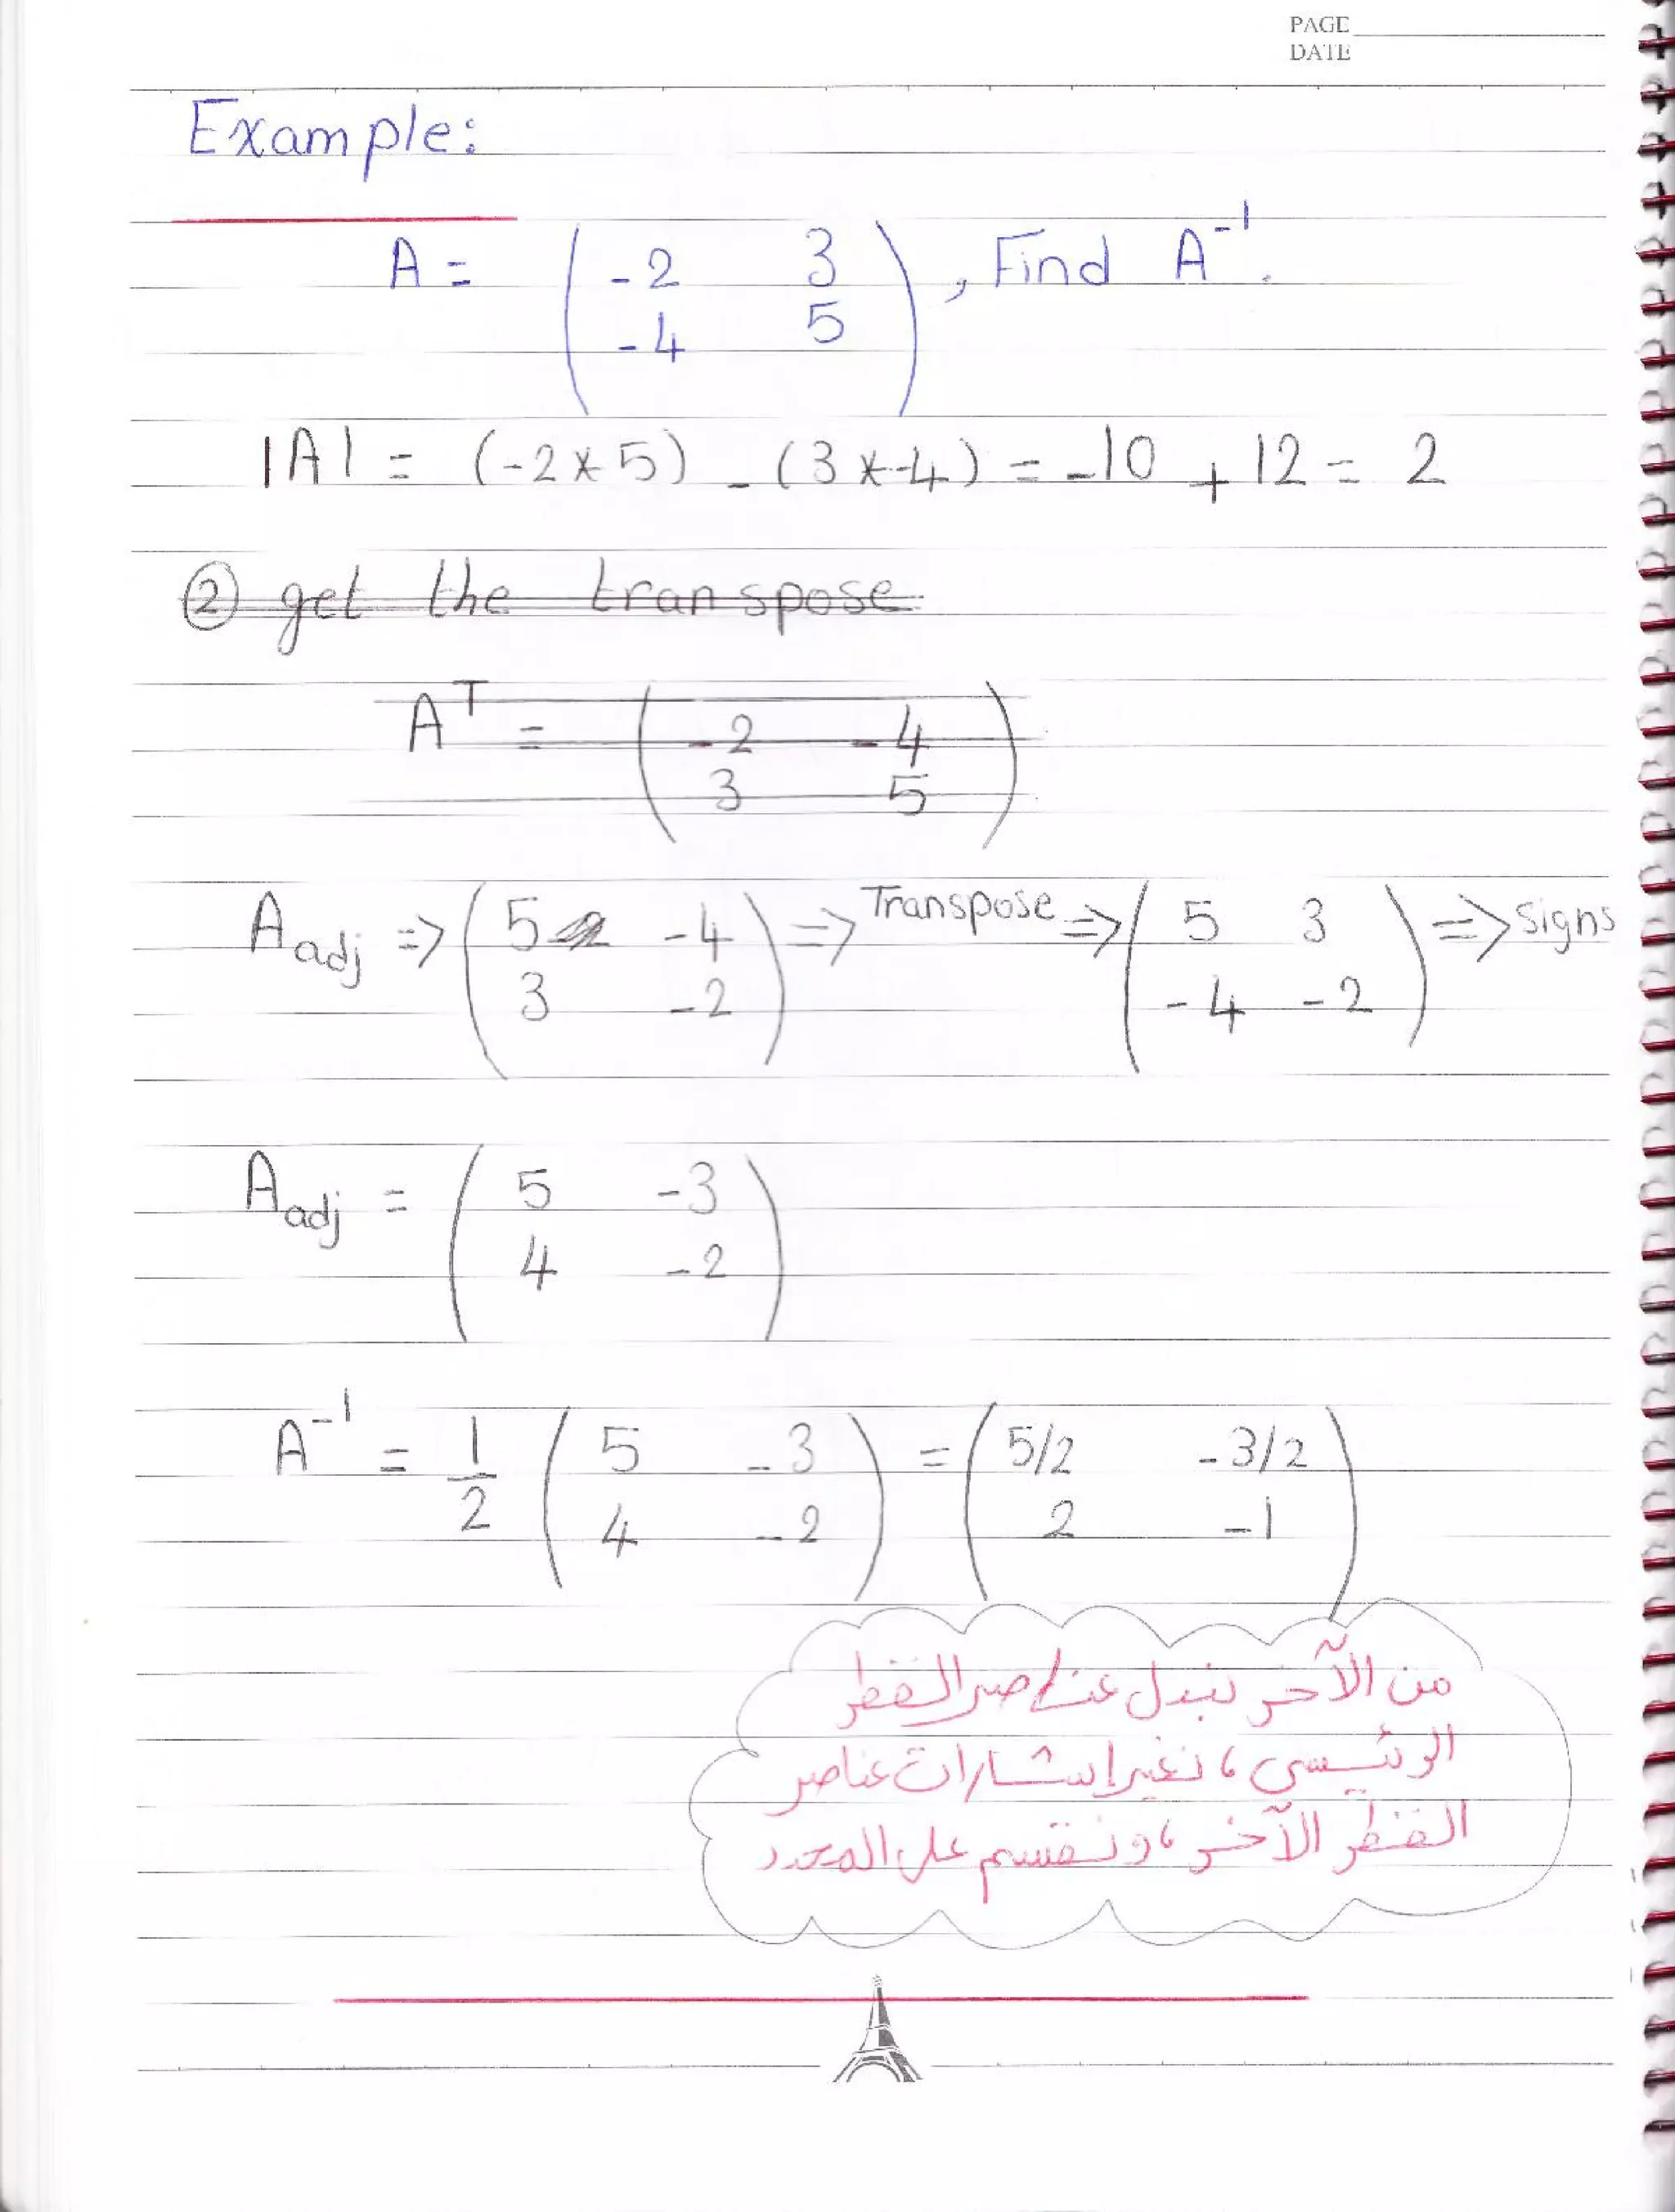 PAGE
DATE
Example:
A = ( -2 3 ) , Find A⁻¹.
( -4 5 )
|A| = (-2*5) - (3*-4) = -10 + 12 = 2
② get the transpose
Aᵀ = ( -2 -4 )
( 3 5 )
A adj => ( 5 -4 ) => Transpose => ( 5 3 ) => signs
( 3 -2 ) ( -4 -2 )
A adj = ( 5 -3 )
( 4 -2 )
A⁻¹ = 1/2 ( 5 -3 ) = ( 5/2 -3/2 )
( 4 -2 ) ( 2 -1 )
من الآخر نبدل عناصر القطر
الرئيسي ، نغير إشارات عناصر
القطر الآخر ، ونقسم على المحدد